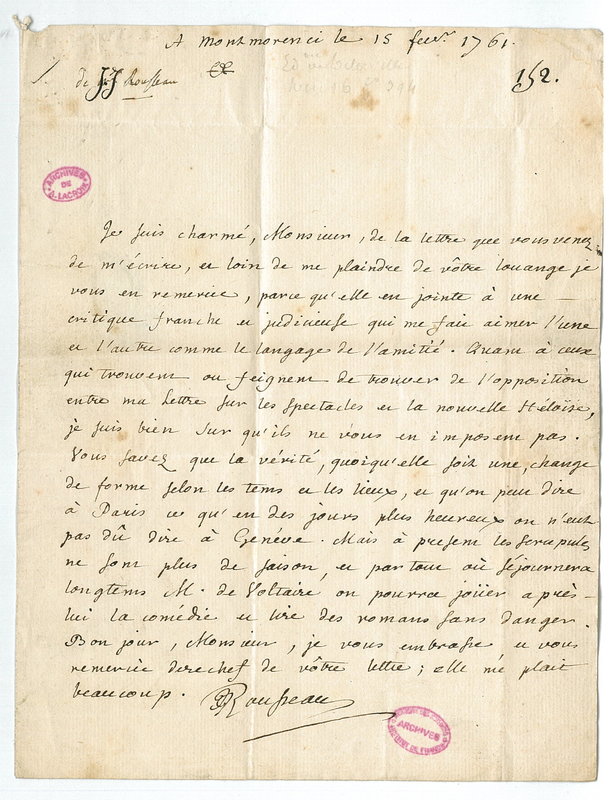 A Montmorenci le 15 fevr. 1761.
de JJ Rousseau
152.
ARCHIVES
DE
A. LACROIX
Je suis charmé, Monsieur, de la lettre que vous venez
de m'écrire, et loin de me plaindre de vôtre louange je
vous en remercie, parce qu'elle est jointe à une —
critique franche et judicieuse qui me fait aimer l'une
et l'autre comme le langage de l'amitié. Quant à ceux
qui trouvent ou feignent de trouver de l'opposition
entre ma Lettre sur les spectacles et la nouvelle Héloïse,
je suis bien sur qu'ils ne vous en imposent pas.
Vous savez que la vérité, quoiqu'elle soit une, change
de forme selon les tems et les lieux, et qu'on peut dire
à Paris ce qu'en des jours plus heureux on n'eut
pas dû dire à Genève. Mais à present les scrupules
ne sont plus de saison, et par tout où séjournera
longtems M. de Voltaire on pourra joüer après-
lui la comédie et lire des romans sans danger.
Bon jour, Monsieur, je vous embrasse et vous
remercie derechef de vôtre lettre; elle me plait
beaucoup. JJRousseau
ARCHIVES